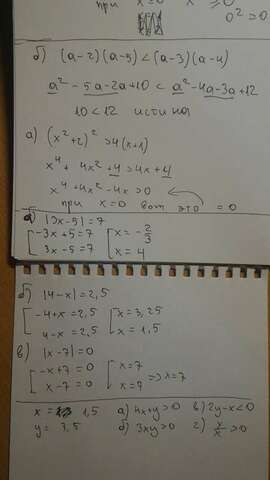 при x=0 x²≥0
0²=0
б) (a-2)(a-5)<(a-3)(a-4)
a²-5a-2a+10<a²-4a-3a+12
10<12 истина
а) (x²+2)²>4(x+1)
x⁴+4x²+4>4x+4
x⁴+4x²-4x>0
при x=0 вот это =0
а) |3x-5|=7
[-3x+5=7 [x=-2/3
3x-5=7 x=4
б) |4-x|=2,5
[-4+x=2,5 [x=3,25
4-x=2,5 x=1,5
в) |x-7|=0
[-x+7=0 [x=7
x-7=0 x=7 =>x=7
x= 1,5 а) 4x+y>0 в) 2y-x<0
y= 3,5 б) 3xy>0 г) y/x>0